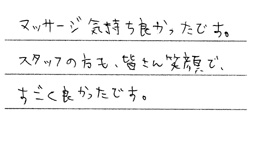 マッサージ気持ち良かったです。
スタッフの方も、皆さん笑顔で、
すごく良かったです。